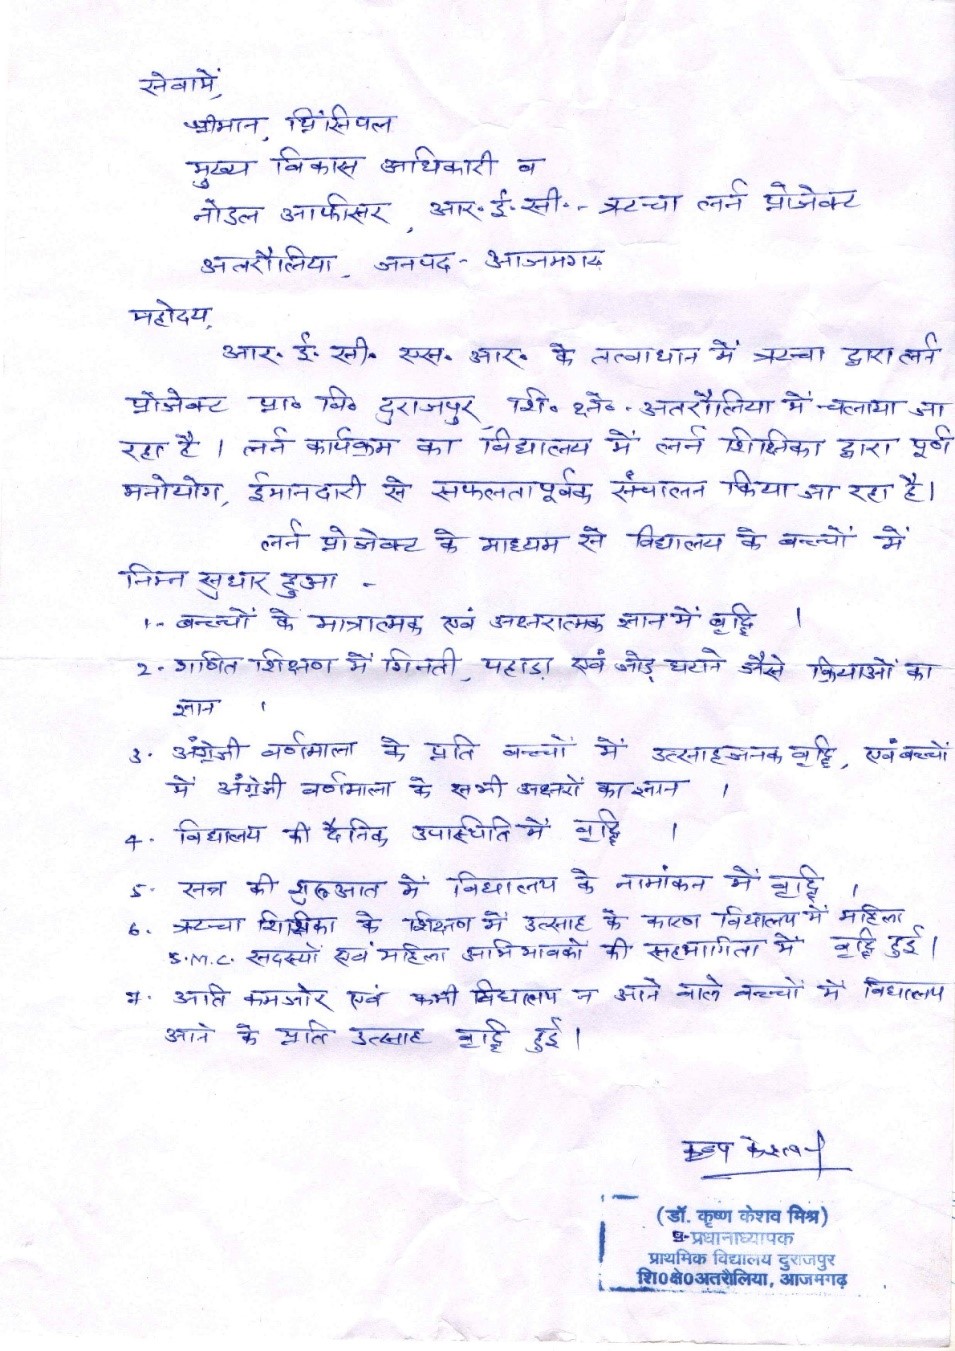 सेवामें,
श्रीमान, प्रिंसिपल
मुख्य विकास अधिकारी व
नोडल आफीसर, आर॰ई॰सी॰- ऋचा लर्न प्रोजेक्ट
अतरौलिया, जनपद- आजमगढ़
महोदय,
आर॰ ई॰ सी॰ एस॰ आर॰ के तत्वाधान में ऋचा द्वारा लर्न
प्रोजेक्ट प्रा॰ वि॰ दुराजपुर, शि॰ क्षे॰-अतरौलिया में चलाया जा
रहा है । लर्न कार्यक्रम का विद्यालय में लर्न शिक्षिका द्वारा पूर्ण
मनोयोग, ईमानदारी से सफलतापूर्वक संचालन किया जा रहा है।
लर्न प्रोजेक्ट के माध्यम से विद्यालय के बच्चों में
निम्न सुधार हुआ -
1- बच्चों के मात्रात्मक एवं अक्षरात्मक ज्ञान में वृद्धि ।
2- गणित शिक्षण में गिनती, पहाड़ा एवं जोड़ घटाने जैसे क्रियाओं का
ज्ञान ।
3- अंग्रेजी वर्णमाला के प्रति बच्चों में उत्साहजनक वृद्धि, एवं बच्चों
में अंग्रेजी वर्णमाला के सभी अक्षरों का ज्ञान ।
4- विद्यालय की दैनिक उपास्थिति में वृद्धि ।
5- सत्र की शुरूआत में विद्यालय के नामांकन में वृद्धि ।
6- ऋचा शिक्षिका के शिक्षण में उत्साह के कारण विद्यालय में महिला
S.M.C. सदस्यों एवं महिला अभिभावकों की सहभागिता में वृद्धि हुई।
7- अति कमजोर एवं कभी विद्यालय न आने वाले बच्चों में विद्यालय
आने के प्रति उत्साह वृद्धि हुई।
कृष्ण केशव
(डॉ. कृष्ण केशव मिश्र)
प्र-प्रधानाध्यापक
प्राथमिक विद्यालय दुराजपुर
शि0क्षे0अतरौलिया, आजमगढ़